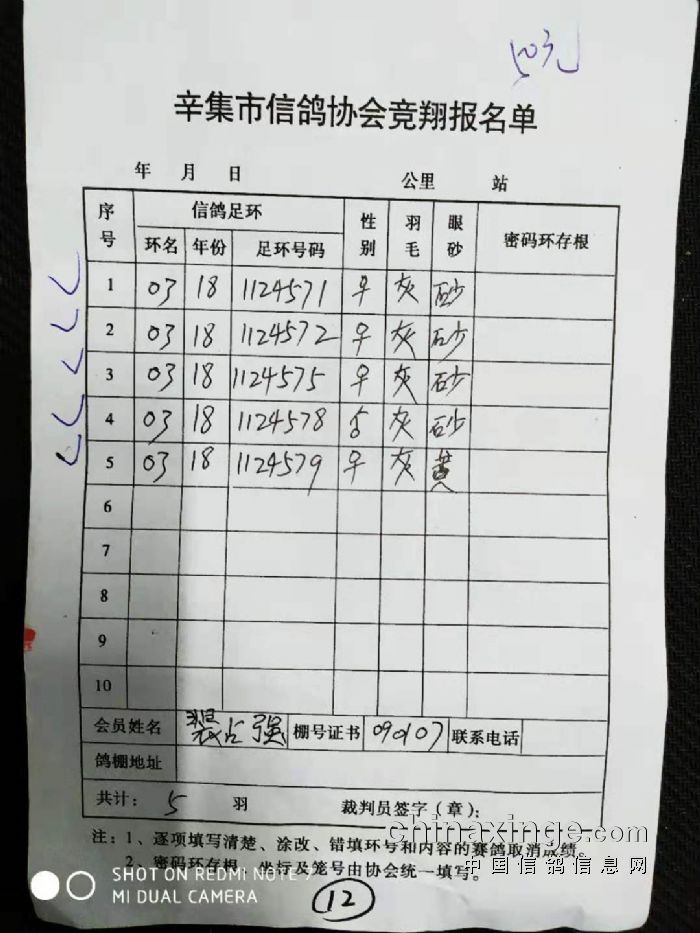 50元
辛集市信鸽协会竞翔报名单
年 月 日 公里 站
序号 信鸽足环 性别 羽毛 眼砂 密码环存根
环名 年份 足环号码
1 03 18 1124571 灰 砂
2 03 18 1124572 灰 砂
3 03 18 1124575 灰 砂
4 03 18 1124578 灰 砂
5 03 18 1124579 灰 黄
6
7
8
9
10
会员姓名 占强 棚号证书 090107 联系电话
鸽棚地址
共计: 5 羽 裁判员签字(章):
注:1、逐项填写清楚、涂改、错填环号和内容的赛鸽取消成绩。
2、密码环存根、坐行及笼号由协会统一填写。
chinaxinge.com
中国信鸽信息网
SHOT ON REDMI NOTE 7
MI DUAL CAMERA
12